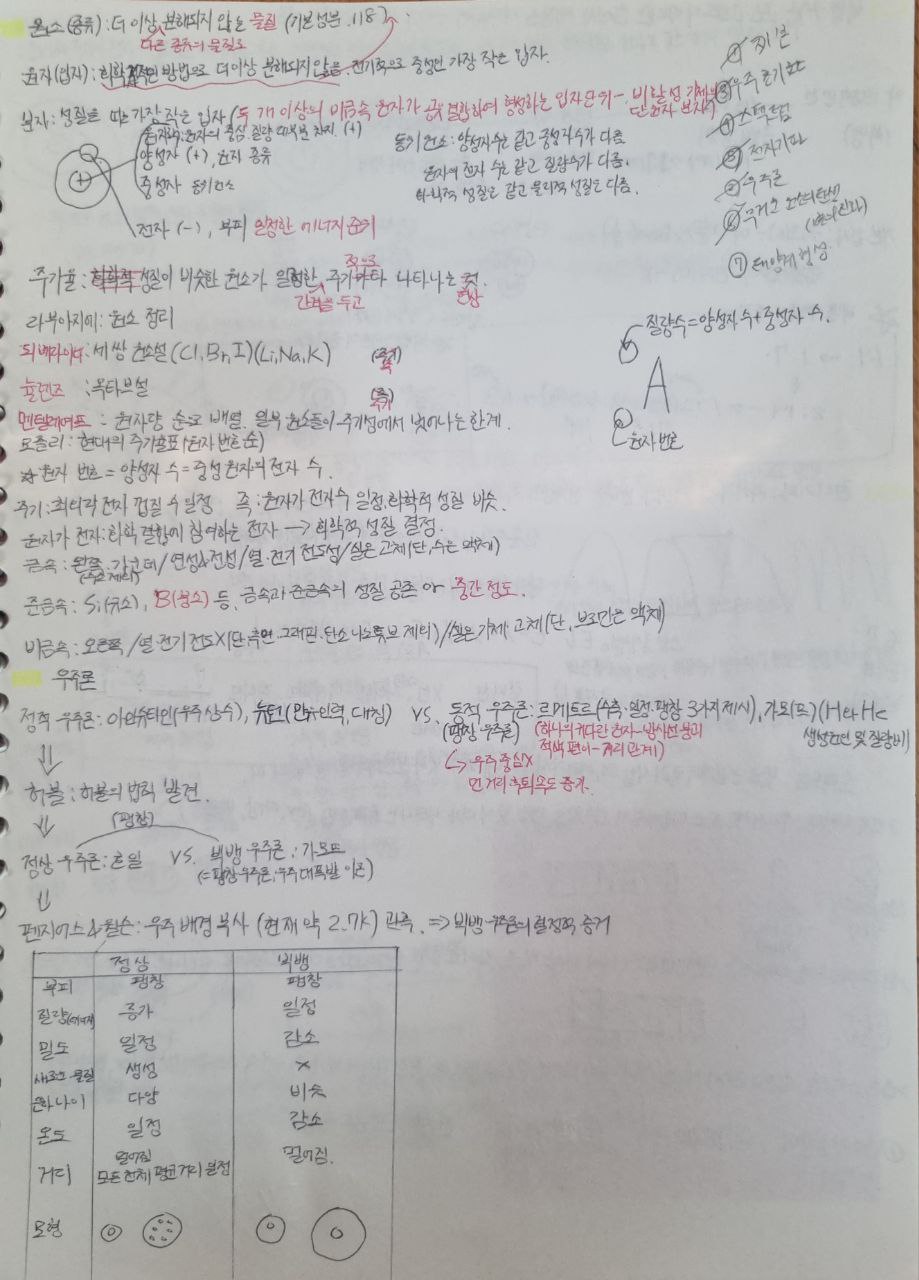 원소(종류): 더 이상 분해되지 않는 물질 (기본성분.118)
다른 종류의 물질로
원자(입자): 화학적인 방법으로 더이상 분해되지 않음. 전기적으로 중성인 가장 작은 입자.
분자: 성질을 띠는 가장 작은 입자 (두 개 이상의 비금속 원자가 공유결합하여 형성하는 입자단위-비활성기체는 단원자 분자)
원자핵: 원자의 중심. 질량 대부분 차지. (+)
양성자 (+), 원자 종류
중성자 동기원소
전자 (-), 부피 일정한 에너지 준위
동기원소: 양성자수는 같고 중성자수가 다름
원자의 전자 수는 같고 질량수가 다름.
화학적 성질은 같고 물리적 성질은 다름.
우주론기한
스펙트럼
전자기파
우주론
⑦ 태양계 형성
주기율: 화학적 성질이 비슷한 원소가 일정한 주기 나타나는 것.
간격을 두고
적으로
현상
라부아지에: 원소 정리
되베라이너: 세 쌍 원소설(Cl, Br, I)(Li, Na, K)
뉴렌즈: 옥타브설
멘델레예프: 원자량 순으로 배열. 일부 원소들이 주기성에서 벗어나는 한계.
모즐리: 현대의 주기율표(원자 번호 순)
☆ 원자 번호 = 양성자 수 = 중성 원자의 전자 수.
질량수=양성자 수+중성자 수.
A
원자 번호
주기: 최외각 전자 껍질 수 일정 족: 원자가 전자수 일정, 화학적 성질 비슷.
원자가 전자: 화학 결합에 참여하는 전자 → 화학적 성질 결정.
금속: 왼쪽·가운데/연성&전성/열·전기 전도성/실온 고체(단, 수은 액체)
(수소 제외)
준금속: Si(규소), B(붕소) 등, 금속과 준금속의 성질 공존 or 중간 정도.
비금속: 오른쪽/열·전기 전도X(단, 흑연·그래핀·탄소 나노튜브 제외)/실온 기체·고체(단, 브로민은 액체)
우주론
정적 우주론: 아인슈타인(우주상수), 뉴턴(만유인력, 대칭) VS. 동적 우주론: 르메트르(수축·일정·팽창 3가지 제시), 가모(프)(H와 He
(팽창 우주론) (하나의 커다란 원자-방사선 붕괴 생성원인 및 질량비)
적색 편이-거리 관계)
↳ 우주 중심X
먼 거리 후퇴속도 증가.
⇓
허블: 허블의 법칙 발견.
⇓
(팽창)
정상 우주론: 호일 VS. 빅뱅 우주론: 가모프
(=팽창우주론, 우주 대폭발 이론)
⇓
펜지어스&윌슨: 우주 배경 복사 (현재 약 2.7K) 관측 ⇒ 빅뱅 우주론의 결정적 증거
정상 빅뱅
부피 팽창 팽창
질량(에너지) 증가 일정
밀도 일정 감소
새로운 물질 생성 x
은하 나이 다양 비슷
온도 일정 감소
거리 멀어짐 멀어짐.
모든 천체 평균 거리 일정
모형